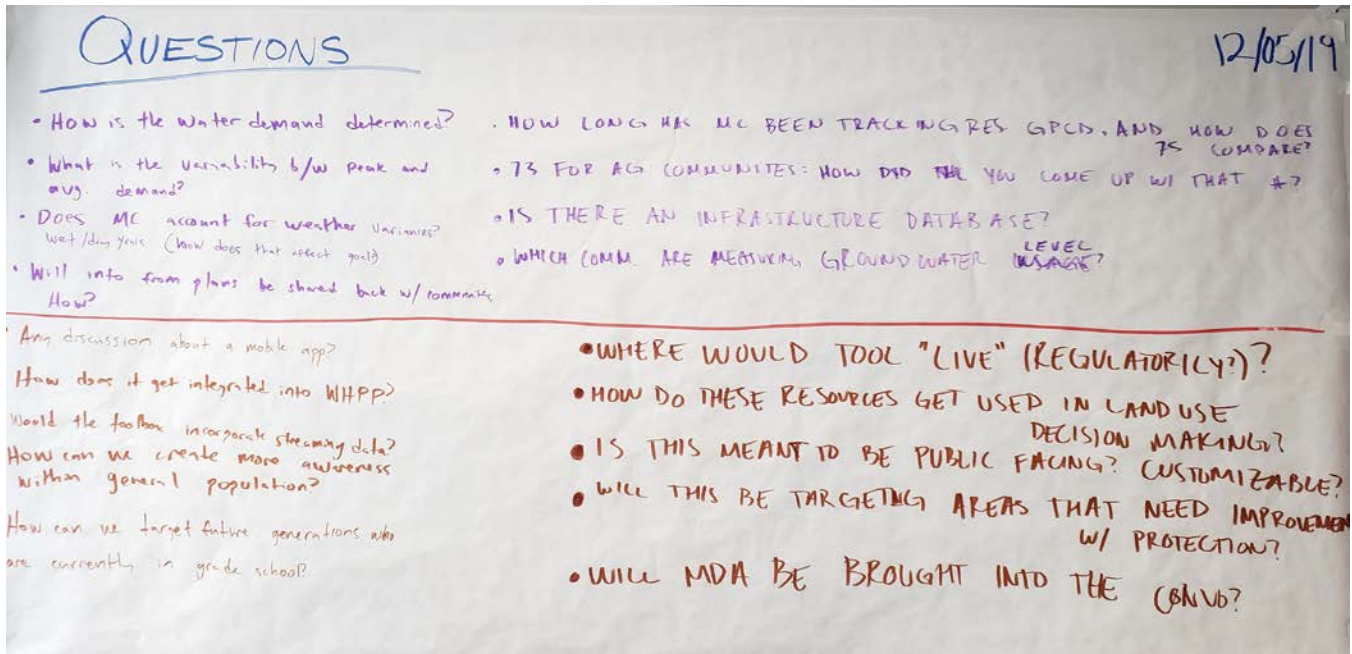 QUESTIONS
12/05/19
• How is the water demand determined?
• What is the variability b/w peak and
avg. demand?
• Does MC account for weather variances?
wet/dry years (how does that affect goals)
• Will info from plans be shared back w/ communities
How?
• HOW LONG HAS MC BEEN TRACKING RES GPCD. AND HOW DOES
75 COMPARE?
• 73 FOR AG COMMUNITES: HOW DID YOU COME UP W/ THAT #?
• IS THERE AN INFRASTRUCTURE DATABASE?
• WHICH COMM. ARE MEASURING GROUNDWATER LEVEL?
• Any discussion about a mobile app?
How does it get integrated into WHPP?
Would the toolbox incorporate streaming data?
How can we create more awareness
within general population?
How can we target future generations who
are currently in grade school?
• WHERE WOULD TOOL "LIVE" (REGULATORILY?)?
• HOW DO THESE RESOURCES GET USED IN LAND USE
DECISION MAKING?
• IS THIS MEANT TO BE PUBLIC FACING? CUSTOMIZABLE?
• WILL THIS BE TARGETING AREAS THAT NEED IMPROVEMEN
W/ PROTECTION?
• WILL MDA BE BROUGHT INTO THE CONVO?